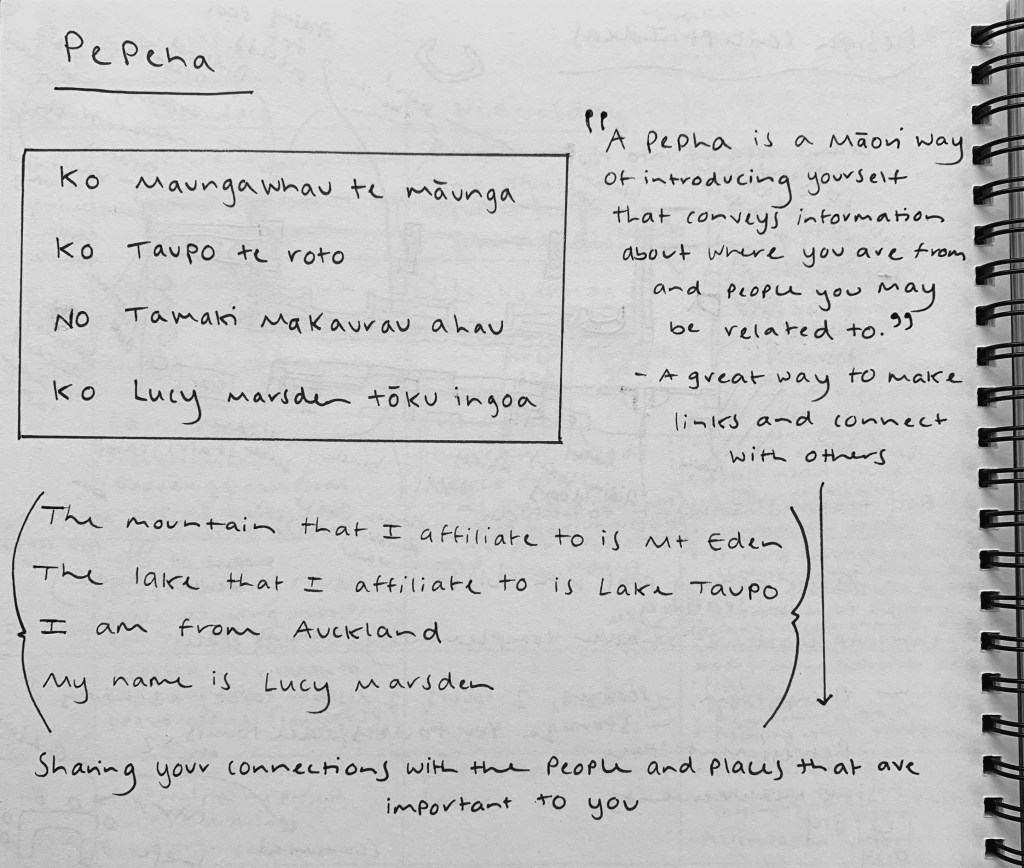 Pepeha
Ko Maungawhau te māunga
Ko Taupo te roto
No Tamaki Makaurau ahau
Ko Lucy Marsden tōku ingoa
"A Pepha is a Māori way
of introducing yourself
that conveys information
about where you are from
and people you may
be related to."
- A great way to make
links and connect
with others
(The mountain that I affiliate to is Mt Eden
The lake that I affiliate to is Lake Taupo
I am from Auckland
My name is Lucy Marsden)
Sharing your connections with the people and places that are
important to you